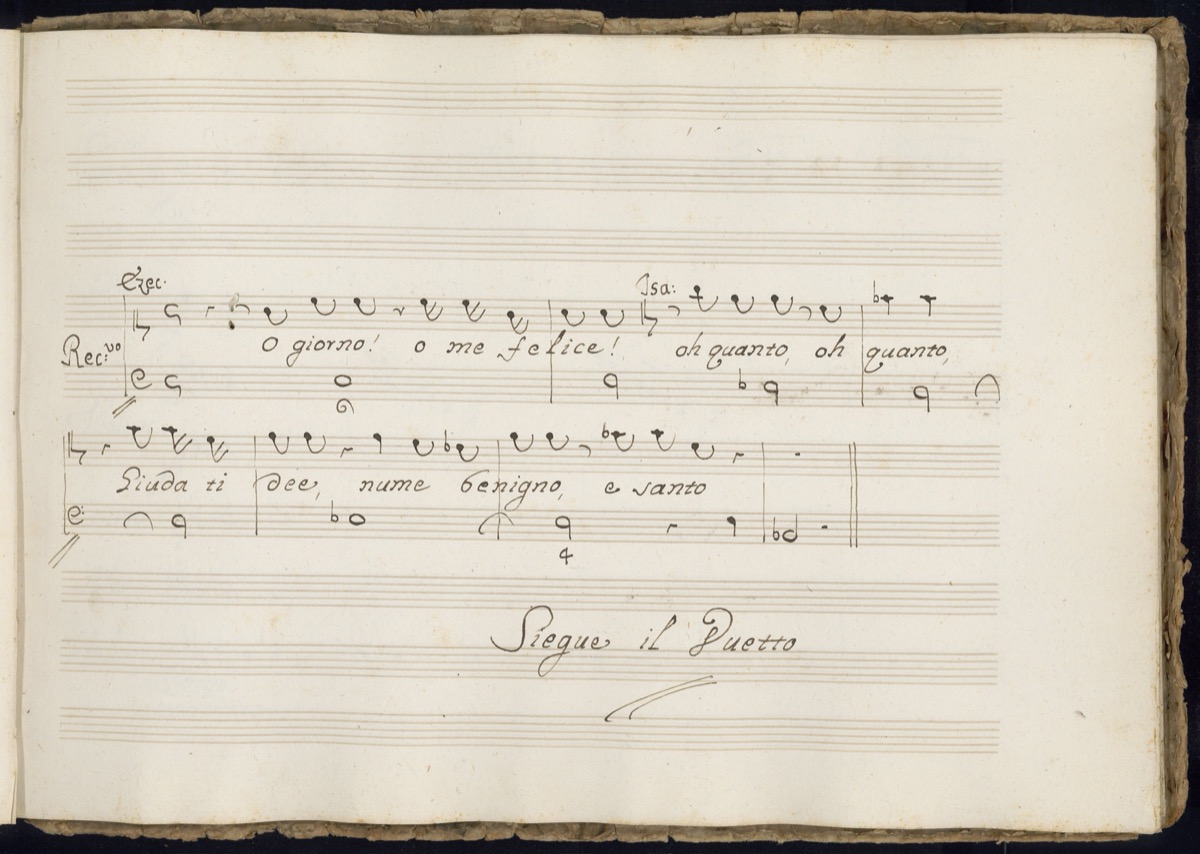 Ezec: Isa:
Rec:vo O giorno! o me felice! oh quanto, oh quanto,
6
Giuda ti dee, nume benigno, e santo
4
Siegue il Duetto